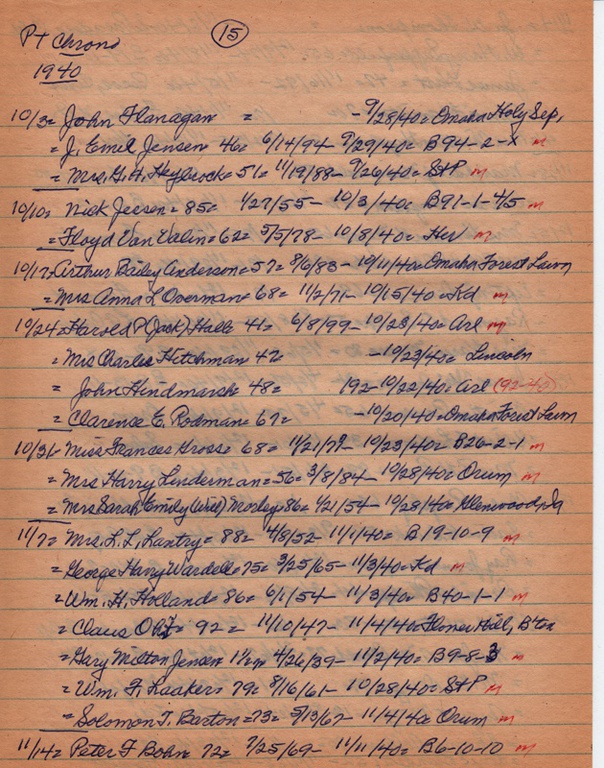 PT Chrono 15
1940
10/3= John Flanagan = - 9/28/40= Omaha Holy Sep.
= J. Emil Jensen 46= 6/14/94- 9/29/40= B94-2-X m
= Mrs. G. H. Heybrock= 51= 11/19/88- 9/26/40= St P m
10/10= Nick Jessen= 85= 1/27/55- 10/3/40= B91-1-4/5 m
= Floyd Van Valin= 62= 5/5/78- 10/8/40= Her m
10/17= Arthur Bailey Anderson= 57= 8/6/83- 10/11/40= Omaha Forest Lawn
= Mrs Anna L Overman= 68= 11/2/71- 10/15/40= Kd m
10/24= Harold P (Jack) Halls 41= 6/8/99- 10/23/40= Arl m
= Mrs Charles Hitchman 42= - 10/23/40= Lincoln
= John Hindmarsh 48= 192- 10/22/40= Arl (92-40)
= Clarence E. Rodman= 67= - 10/20/40= Omaha Forest Lawn
10/31= Miss Frances Gross= 68= 11/21/72- 10/23/40= B26-2-1 m
= Mrs Harry Linderman= 56= 3/8/84- 10/28/40= Orum m
= Mrs Sarah Emily (Will) Mosley= 86= 1/21/54- 10/28/40= Glenwood, Ia
11/7= Mrs. L. L. Lantry= 88= 4/8/52- 11/1/40= B19-10-9 m
= George Harry Wardell= 75= 3/25/65- 11/3/40= Kd m
= Wm. H. Holland= 86= 6/1/54- 11/3/40= B40-1-1 m
= Claus Ott= 92= 11/10/47- 11/4/40= Flower Hill, B'ton
= Gary Milton Jensen 1 1/2 yr 4/26/39- 11/2/40= B9-8-3 m
= Wm. F. Laaker= 79= 8/16/61- 10/28/40= St P m
= Solomon T. Barton= 73= 5/13/67- 11/4/40= Orum m
11/14= Peter F Bohn 72= 7/25/69- 11/11/40= B6-10-10 m